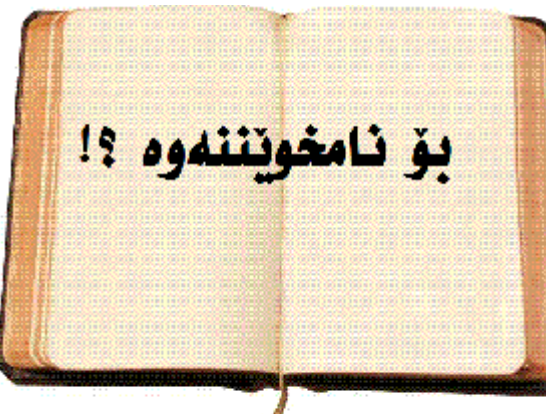 بۆ نامخوێننەوە ؟!